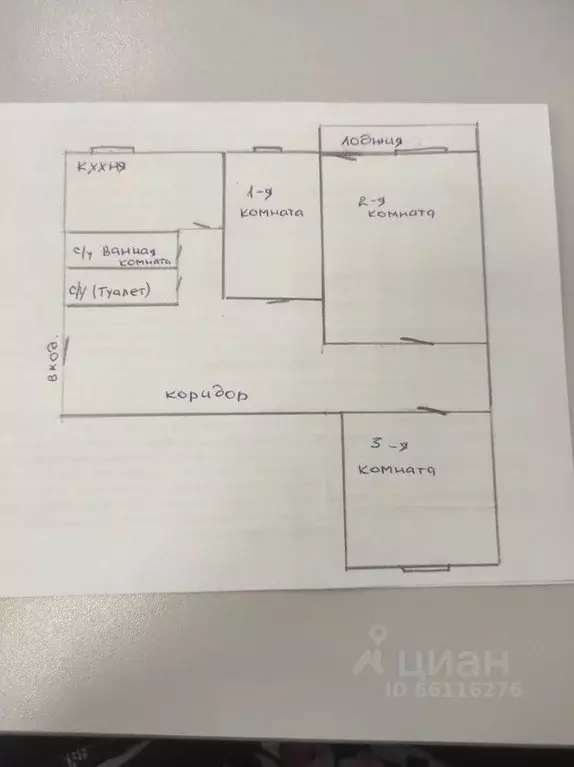 лоджия
кухня
1-я
комната
2-я
комната
с/у Ванная
комната
с/у (Туалет)
вход.
коридор
3-я
комната
циан
ID 66116276